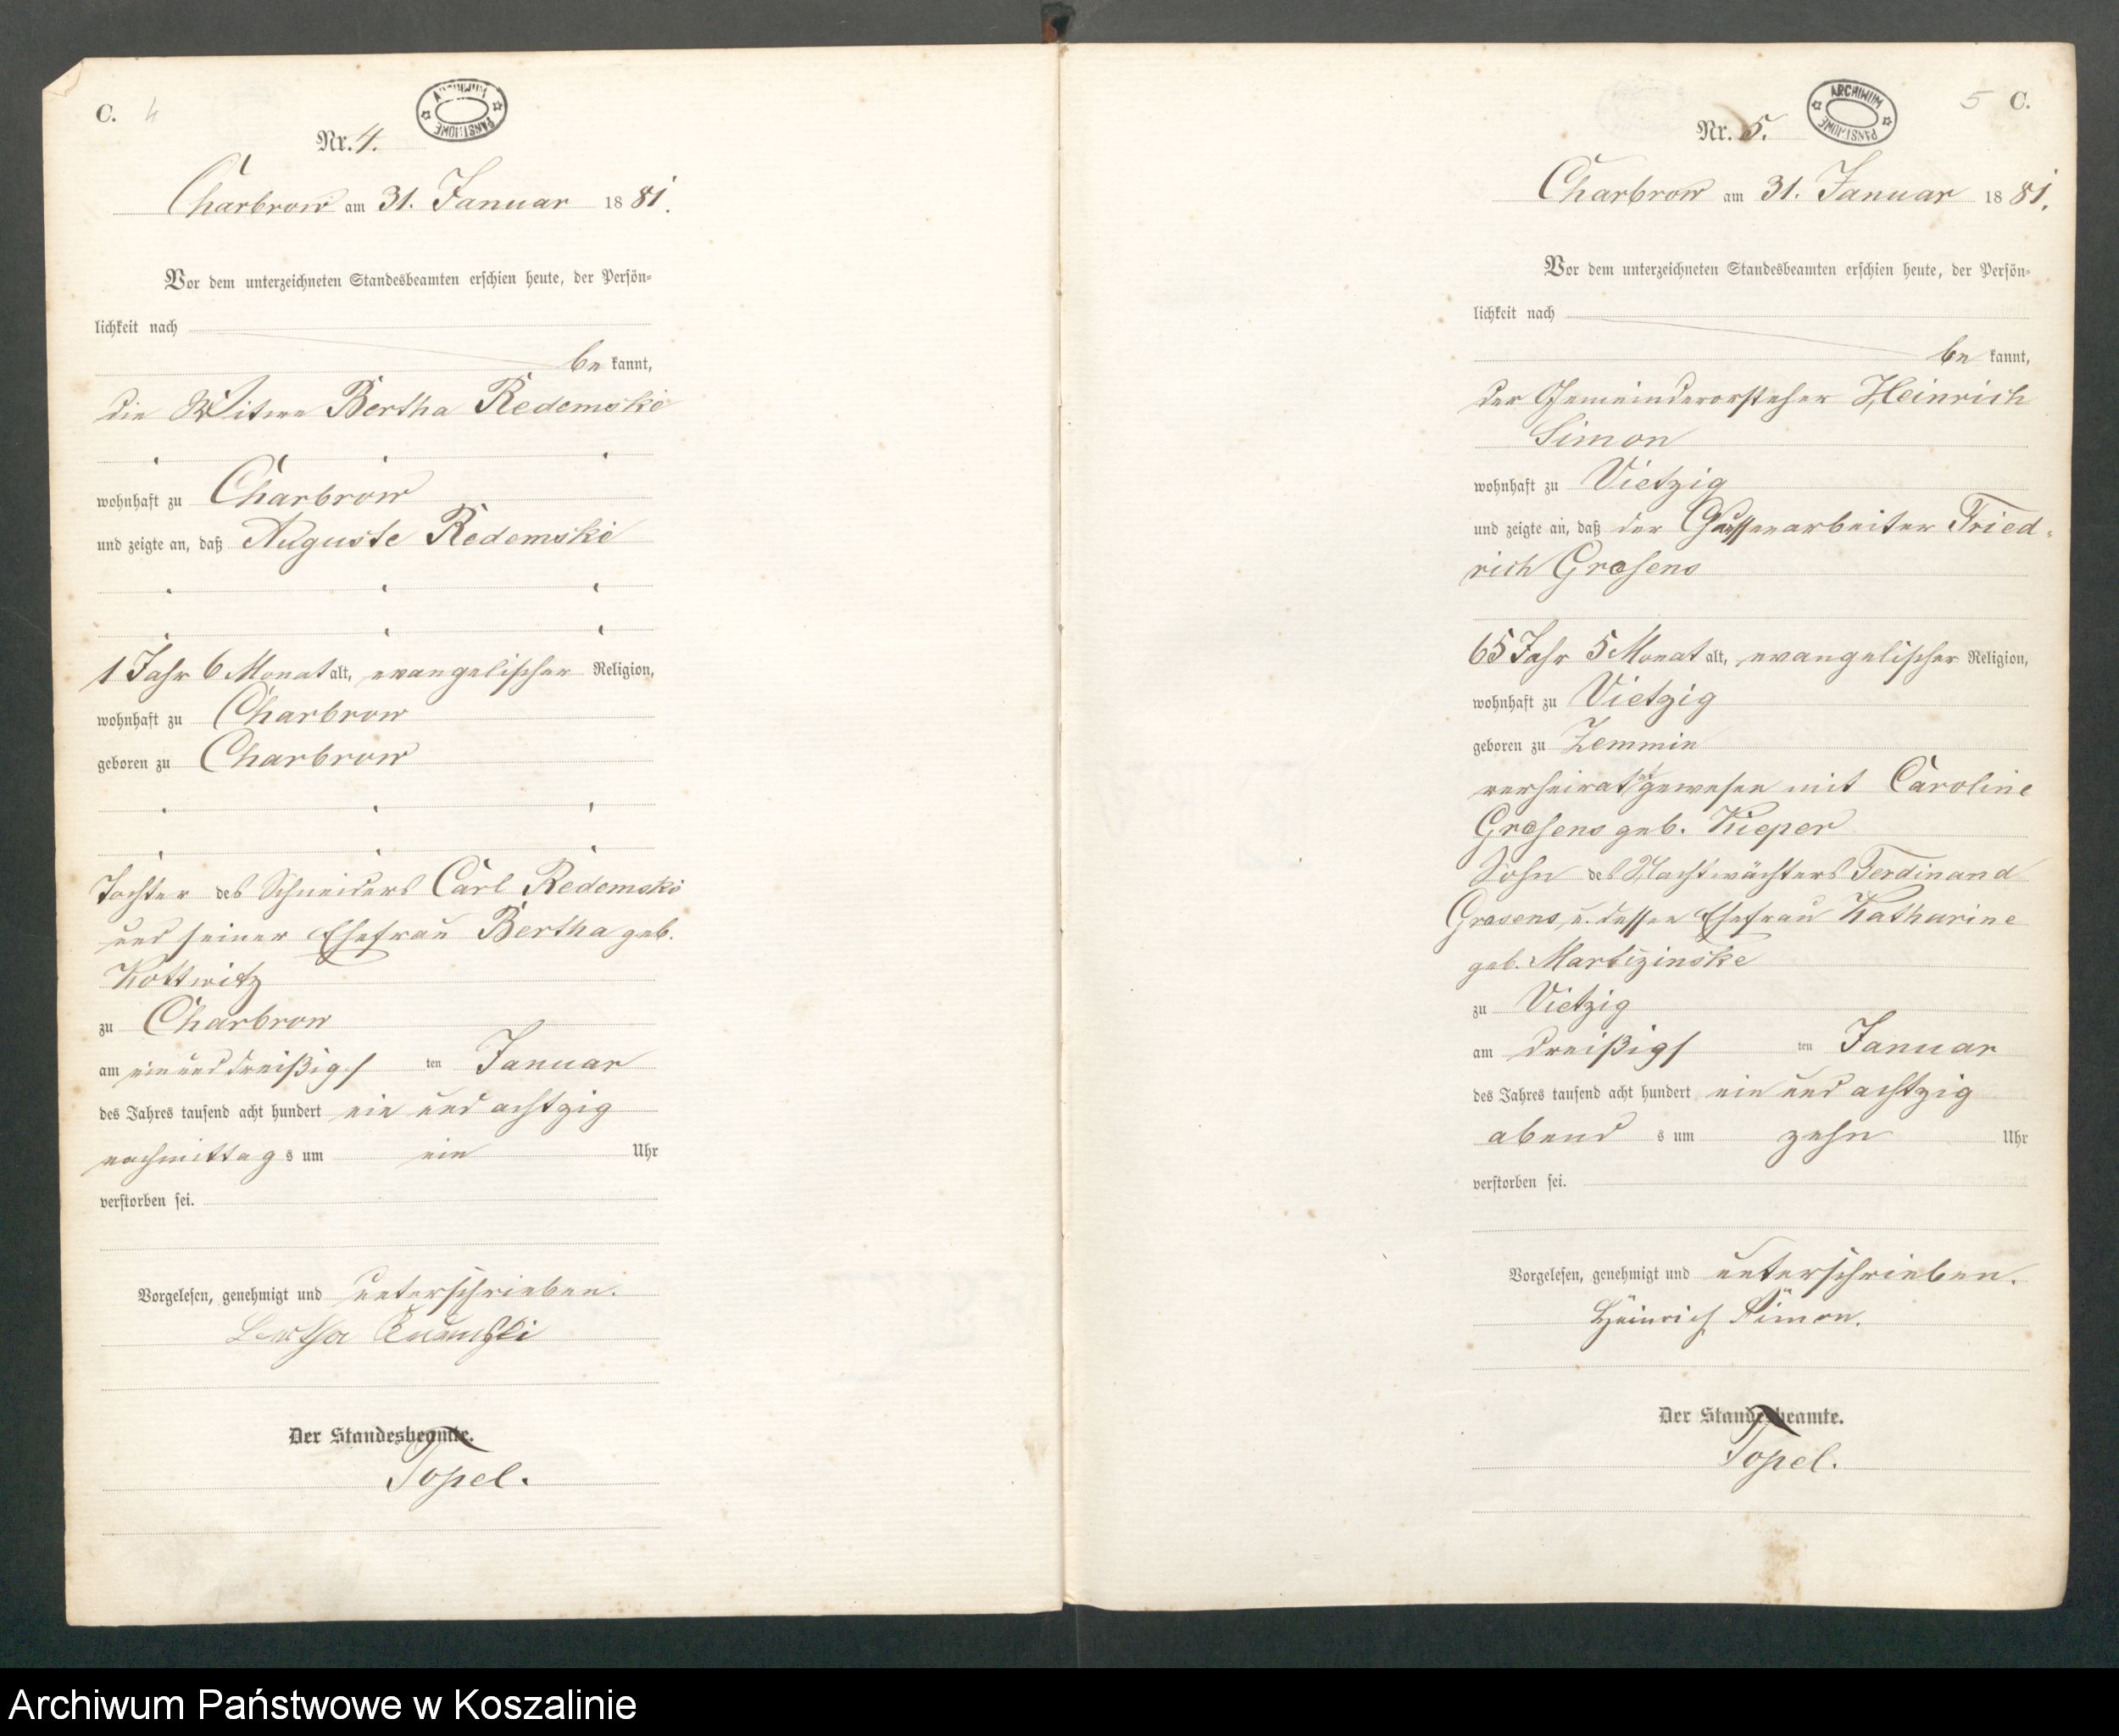 C. 4
ARCHIWUM PAŃSTWOWE
Nr. 4.
Charbrow am 31. Januar 1881.
Vor dem unterzeichneten Standesbeamten erschien heute, der Persön-
lichkeit nach
be kannt,
die Witwe Bertha Redemske
wohnhaft zu Charbrow
und zeigte an, daß Auguste Redemski
1 Jahr 6 Monat alt, evangelischer Religion,
wohnhaft zu Charbrow
geboren zu Charbrow
Tochter des Schneiders Carl Redemski
und seiner Ehefrau Bertha geb.
Kottwitz
zu Charbrow
am ein und dreißigs ten Januar
des Jahres tausend acht hundert ein und achtzig
nachmittag s um ein Uhr
verstorben sei.
Vorgelesen, genehmigt und unterschrieben.
Bertha
Der Standesbeamte.
Topel.
5 C.
ARCHIWUM PAŃSTWOWE
Nr. 5.
Charbrow am 31. Januar 1881.
Vor dem unterzeichneten Standesbeamten erschien heute, der Persön-
lichkeit nach
be kannt,
der Gemeindevorsteher Heinrich
Simon
wohnhaft zu Vietzig
und zeigte an, daß der Fried-
rich Grosens
65 Jahr 5 Monat alt, evangelischer Religion,
wohnhaft zu Vietzig
geboren zu Zemmin
verheirathet gewesen mit Caroline
Grosens geb. Kieper
Sohn des Nachtwächters Ferdinand
Grosens, u. dessen Ehefrau Katharine
geb.
zu Vietzig
am dreißigs ten Januar
des Jahres tausend acht hundert ein und achtzig
abend s um zehn Uhr
verstorben sei.
Vorgelesen, genehmigt und unterschrieben.
Heinrich Simon.
Der Standesbeamte.
Topel.
Archiwum Państwowe w Koszalinie